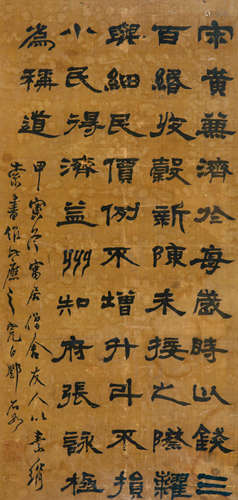 宋黃兼濟於每歲時以錢三
百緡收穀新陳未接之際糶
與細民價例不增升斗不損
小民得濟益州知府張詠極
為稱道
甲寅冬寓居僧舍友人以素絹
索書作此應之完白鄧石如